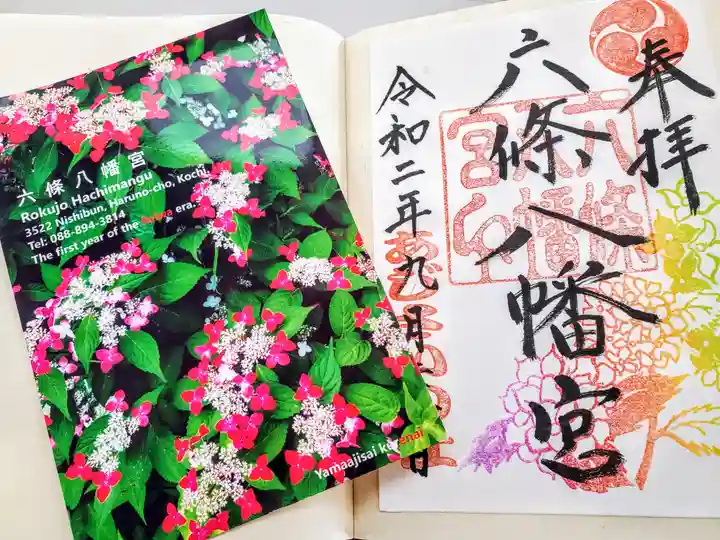 六條八幡宮
Rokujo Hachimangu
3522 Nishibun, Haruno-cho, Kochi,
Tel: 088-894-3814
The first year of the Reiwa era.
Yamaajisai kurenai
奉拝
六條八幡宮
令和二年九月
日